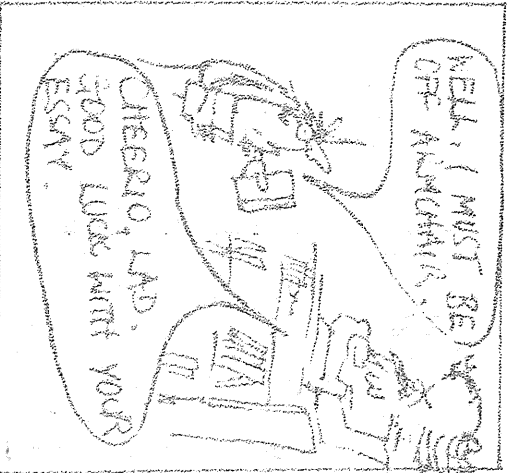 WELL, I MUST BE
OFF ARMCHAIR.
CHEERIO, LAD.
GOOD LUCK WITH YOUR
ESSAY